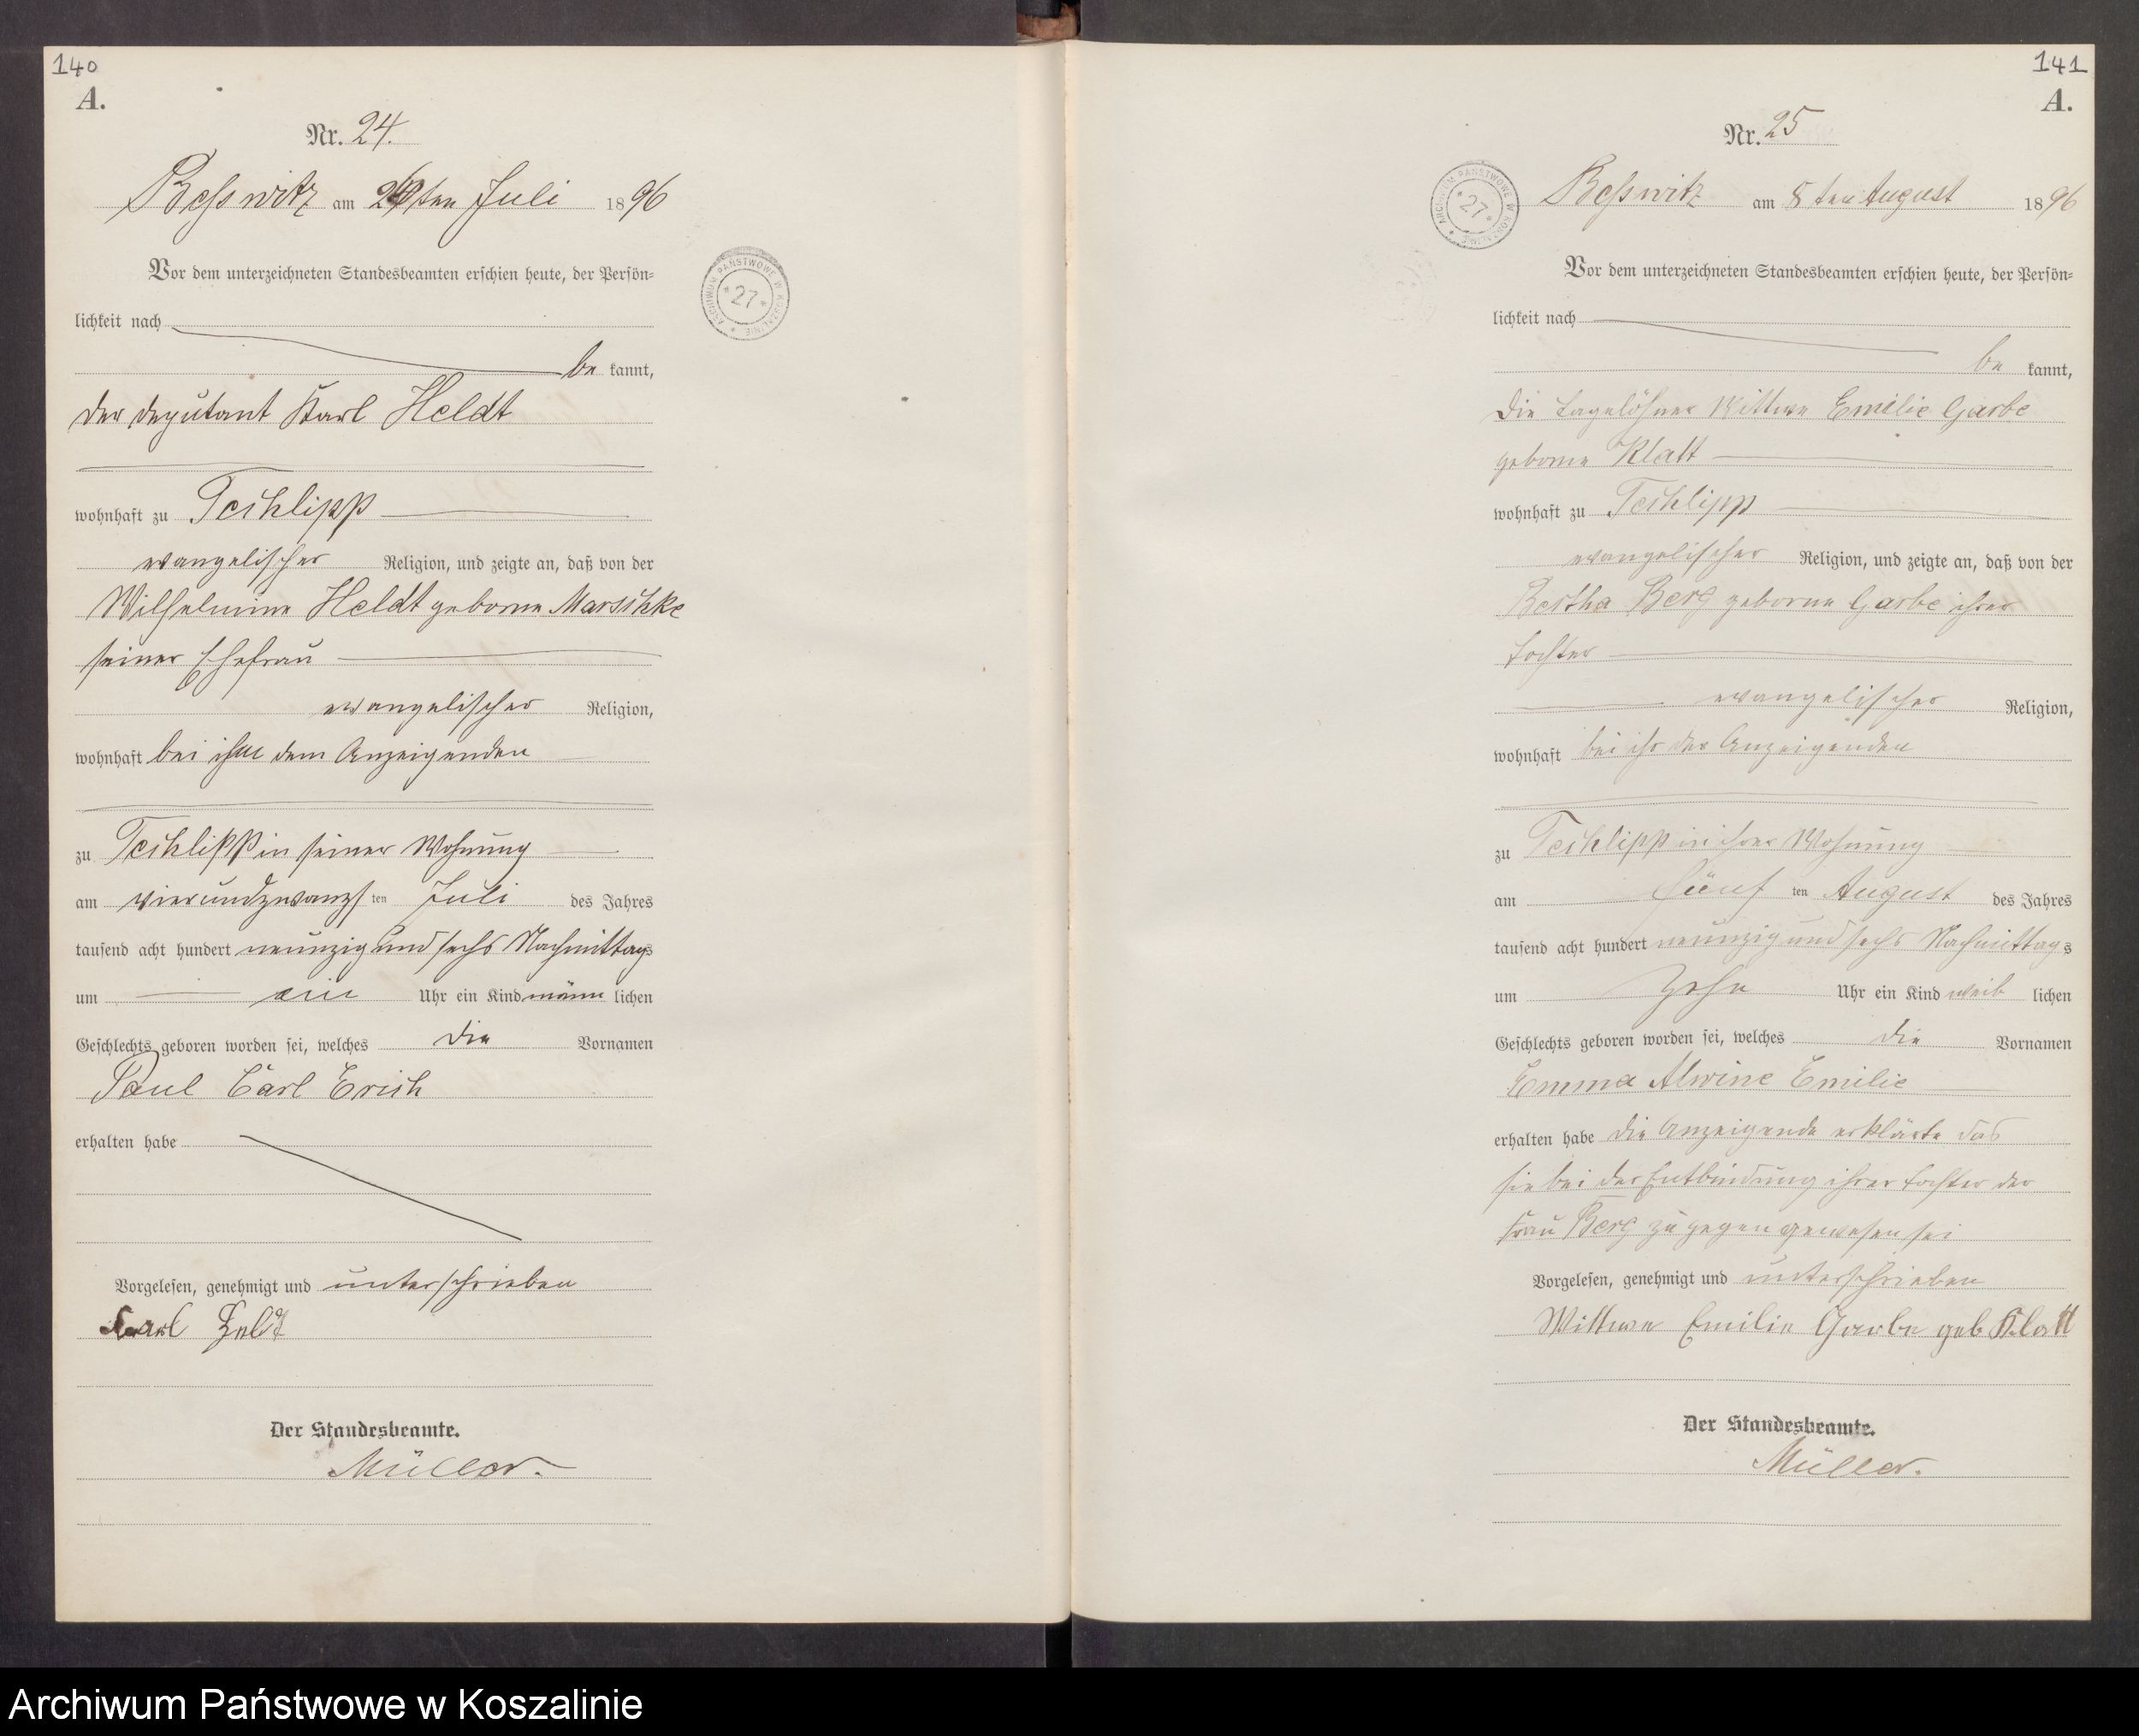 140
A.
Nr. 24.
Beßwitz am ten Juli 1896
ARCHIWUM PAŃSTWOWE W KOSZALINIE
* 27 *
Vor dem unterzeichneten Standesbeamten erschien heute, der Persön=
lichkeit nach
be kannt,
der deputant Karl Heldt
wohnhaft zu Techlipp
evangelischer Religion, und zeigte an, daß von der
Wilhelmine Heldt geborne Marschke
seiner Ehefrau
evangelischer Religion,
wohnhaft bei ihm dem Anzeigenden
zu Techlipp in seiner Wohnung
am vierundzwanzigs ten Juli des Jahres
tausend acht hundert neunzig und sechs Nachmittags
um ein Uhr ein Kind männ lichen
Geschlechts geboren worden sei, welches die Vornamen
Paul Carl Erich
erhalten habe
Vorgelesen, genehmigt und unterschrieben
Karl Heldt
Der Standesbeamte.
Müller.
141
A.
Nr. 25
ARCHIWUM PAŃSTWOWE W KOSZALINIE
* 27 *
Beßwitz am 8 ten August 1896
Vor dem unterzeichneten Standesbeamten erschien heute, der Persön=
lichkeit nach
be kannt,
die Tagelöhner Wittwe Emilie Garbe
geborne Klatt
wohnhaft zu Techlipp
evangelischer Religion, und zeigte an, daß von der
Bertha Berg geborne Garbe ihrer
Tochter
evangelischer Religion,
wohnhaft bei ihr der Anzeigenden
zu Techlipp in ihrer Wohnung
am fünf ten August des Jahres
tausend acht hundert neunzig und sechs Nachmittags
um zehn Uhr ein Kind weib lichen
Geschlechts geboren worden sei, welches die Vornamen
Emma Alwine Emilie
erhalten habe die Anzeigende erklärte das
sie bei der Entbindung ihrer Tochter der
Frau Berg zu gegen gewesen sei
Vorgelesen, genehmigt und unterschrieben
Wittwe Emilie Garbe geb Klatt
Der Standesbeamte.
Müller.
Archiwum Państwowe w Koszalinie